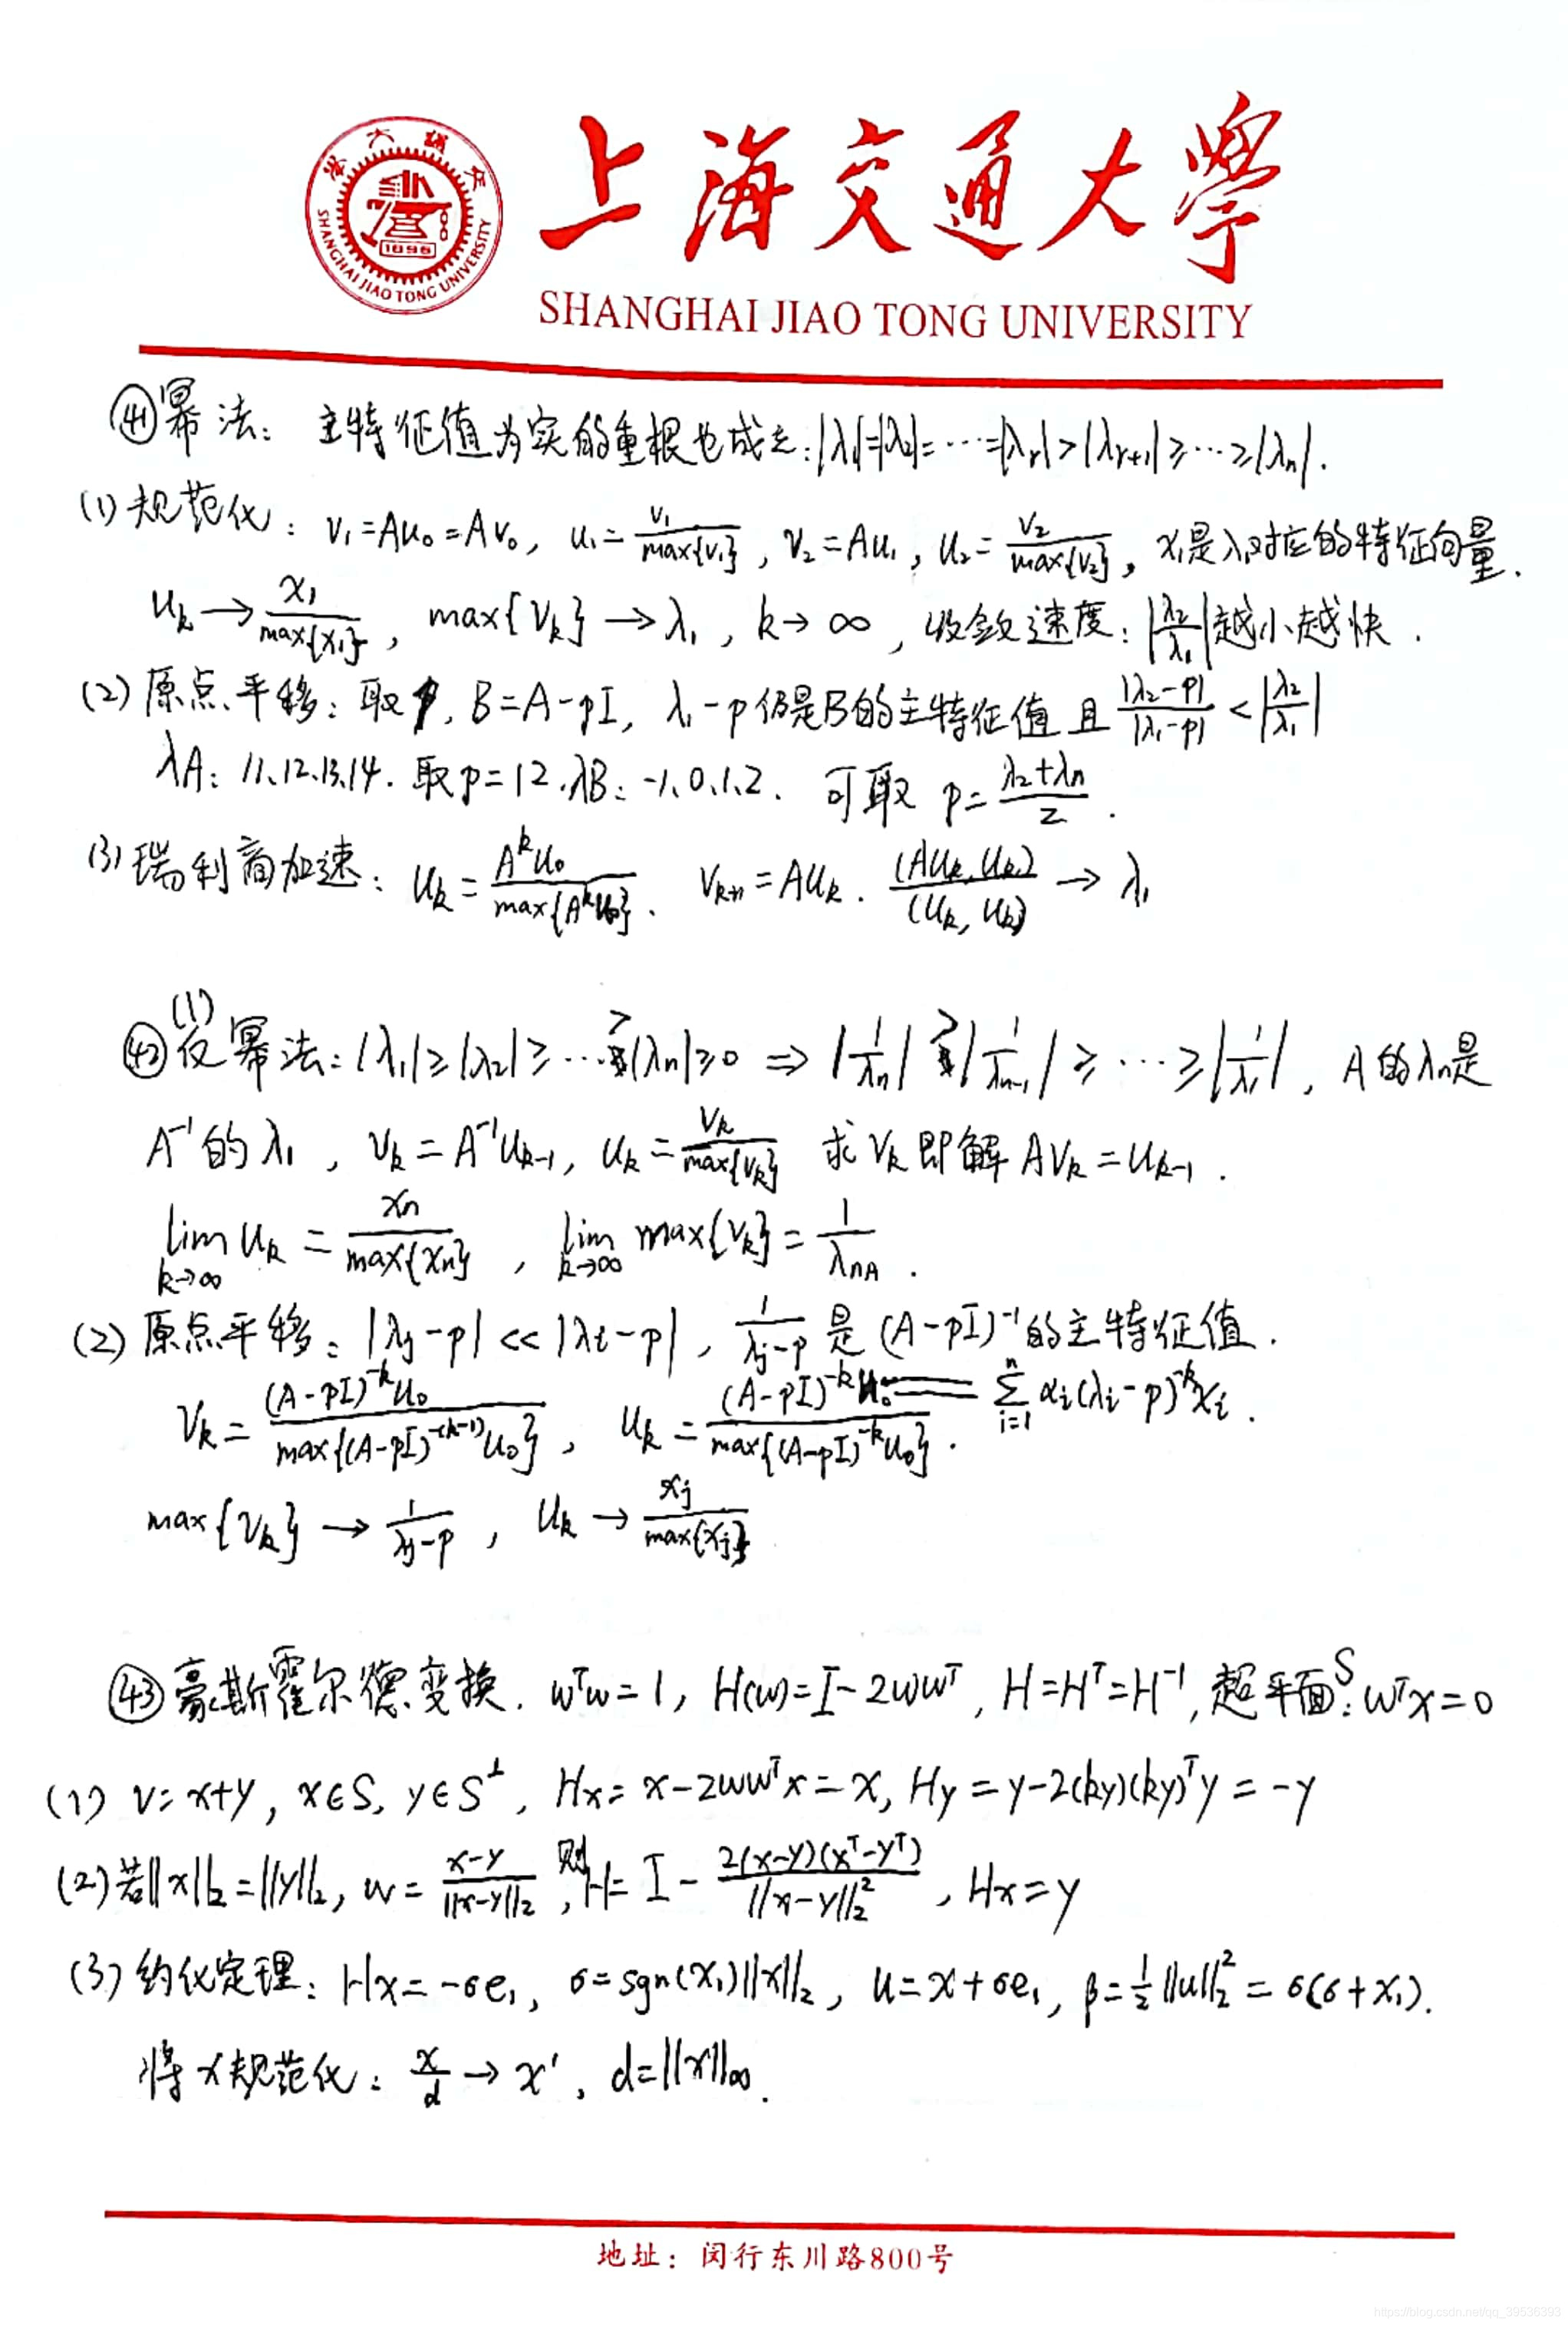 上海交通大学
SHANGHAI JIAO TONG UNIVERSITY
1896
SHANGHAI JIAO TONG UNIVERSITY
㊶幂法: 主特征值为实的重根也成立: |λ₁|=|λ₂|=⋯=|λr|>|λr+1|≥⋯≥|λn|.
(1) 规范化: v₁=Au₀=Av₀, u₁=v₁/max{v₁}, v₂=Au₁, u₂=v₂/max{v₂}, x₁是λ₁对应的特征向量.
uk→x₁/max{x₁}, max{vk}→λ₁, k→∞, 收敛速度: |λ₂/λ₁|越小越快.
(2) 原点平移: 取p, B=A-pI, λ₁-p仍是B的主特征值 且 |λ₂-p|/|λ₁-p|<|λ₂/λ₁|
λA: 11、12、13、14. 取p=12. λB: -1、0、1、2. 可取 p=(λ₂+λn)/2.
(3) 瑞利商加速: uk=A^k u₀/max{A^k u₀}. vk+1=Auk. (Auk, uk)/(uk, uk)→λ₁
㊷(1)反幂法: |λ₁|≥|λ₂|≥⋯>|λn|≥0 ⇒ |1/λn|>|1/λn-1|≥⋯≥|1/λ₁|, A的λn是
A⁻¹的λ₁, vk=A⁻¹uk-1, uk=vk/max{vk} 求vk即解Avk=uk-1.
lim k→∞ uk=xn/max{xn}, lim k→∞ max{vk}=1/λnA.
(2) 原点平移: |λj-p|<<|λi-p|, 1/(λj-p)是(A-pI)⁻¹的主特征值.
vk=(A-pI)^-k u₀/max{(A-pI)^-(k-1) u₀}, uk=(A-pI)^-k u₀/max{(A-pI)^-k u₀}. = Σ i=1 n αi(λi-p)^-k xi.
max{vk}→1/(λj-p), uk→xj/max{xj}
㊸豪斯霍尔德变换. wᵀw=1, H(w)=I-2wwᵀ, H=Hᵀ=H⁻¹, 超平面S: wᵀx=0
(1) v=x+y, x∈S, y∈S^⊥, Hx=x-2wwᵀx=x, Hy=y-2(ky)(ky)ᵀy=-y
(2) 若||x||₂=||y||₂, w=(x-y)/||x-y||₂, 则H=I-2(x-y)(xᵀ-yᵀ)/||x-y||₂², Hx=y
(3) 约化定理: Hx=-σe₁, σ=sgn(x₁)||x||₂, u=x+σe₁, β=½||u||₂²=σ(σ+x₁).
将x规范化: x/d→x', d=||x||∞.
地址: 闵行东川路800号
https://blog.csdn.net/qq_39536393